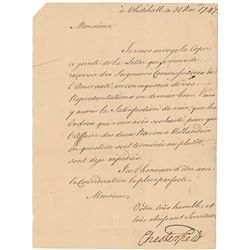 à Whitehall ce 28 Nov. 1747
Monsieur,
Je vous envoye la Copie
cy jointe de la Lettre que je viens de
recevoir des Seigneurs Commissaires de
l'Amirauté, en consequence de vos
Representations en dernier lieu. Vous
y aurés la Satisfaction de voir, que les
Ordres que vous avés souhaité, pour que
l'Affaire des deux Navires Hollandois
en question soit terminée au plutôt,
sont deja expediés.
J'ai l'honneur d'être avec
la Consideration la plus parfaite,
Monsieur,
Votre très humble, et
très obeissant Serviteur
Chesterfield